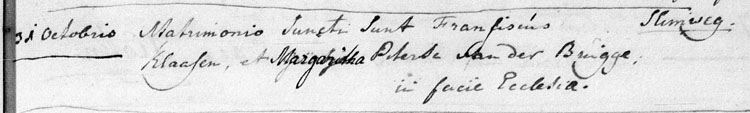 31 Octobris Matrimonio Juncti Sunt Fransiscus Slimweg.
Klaasen, et Margaritha Pïterse van der Brugge,
in facie Ecclesia.